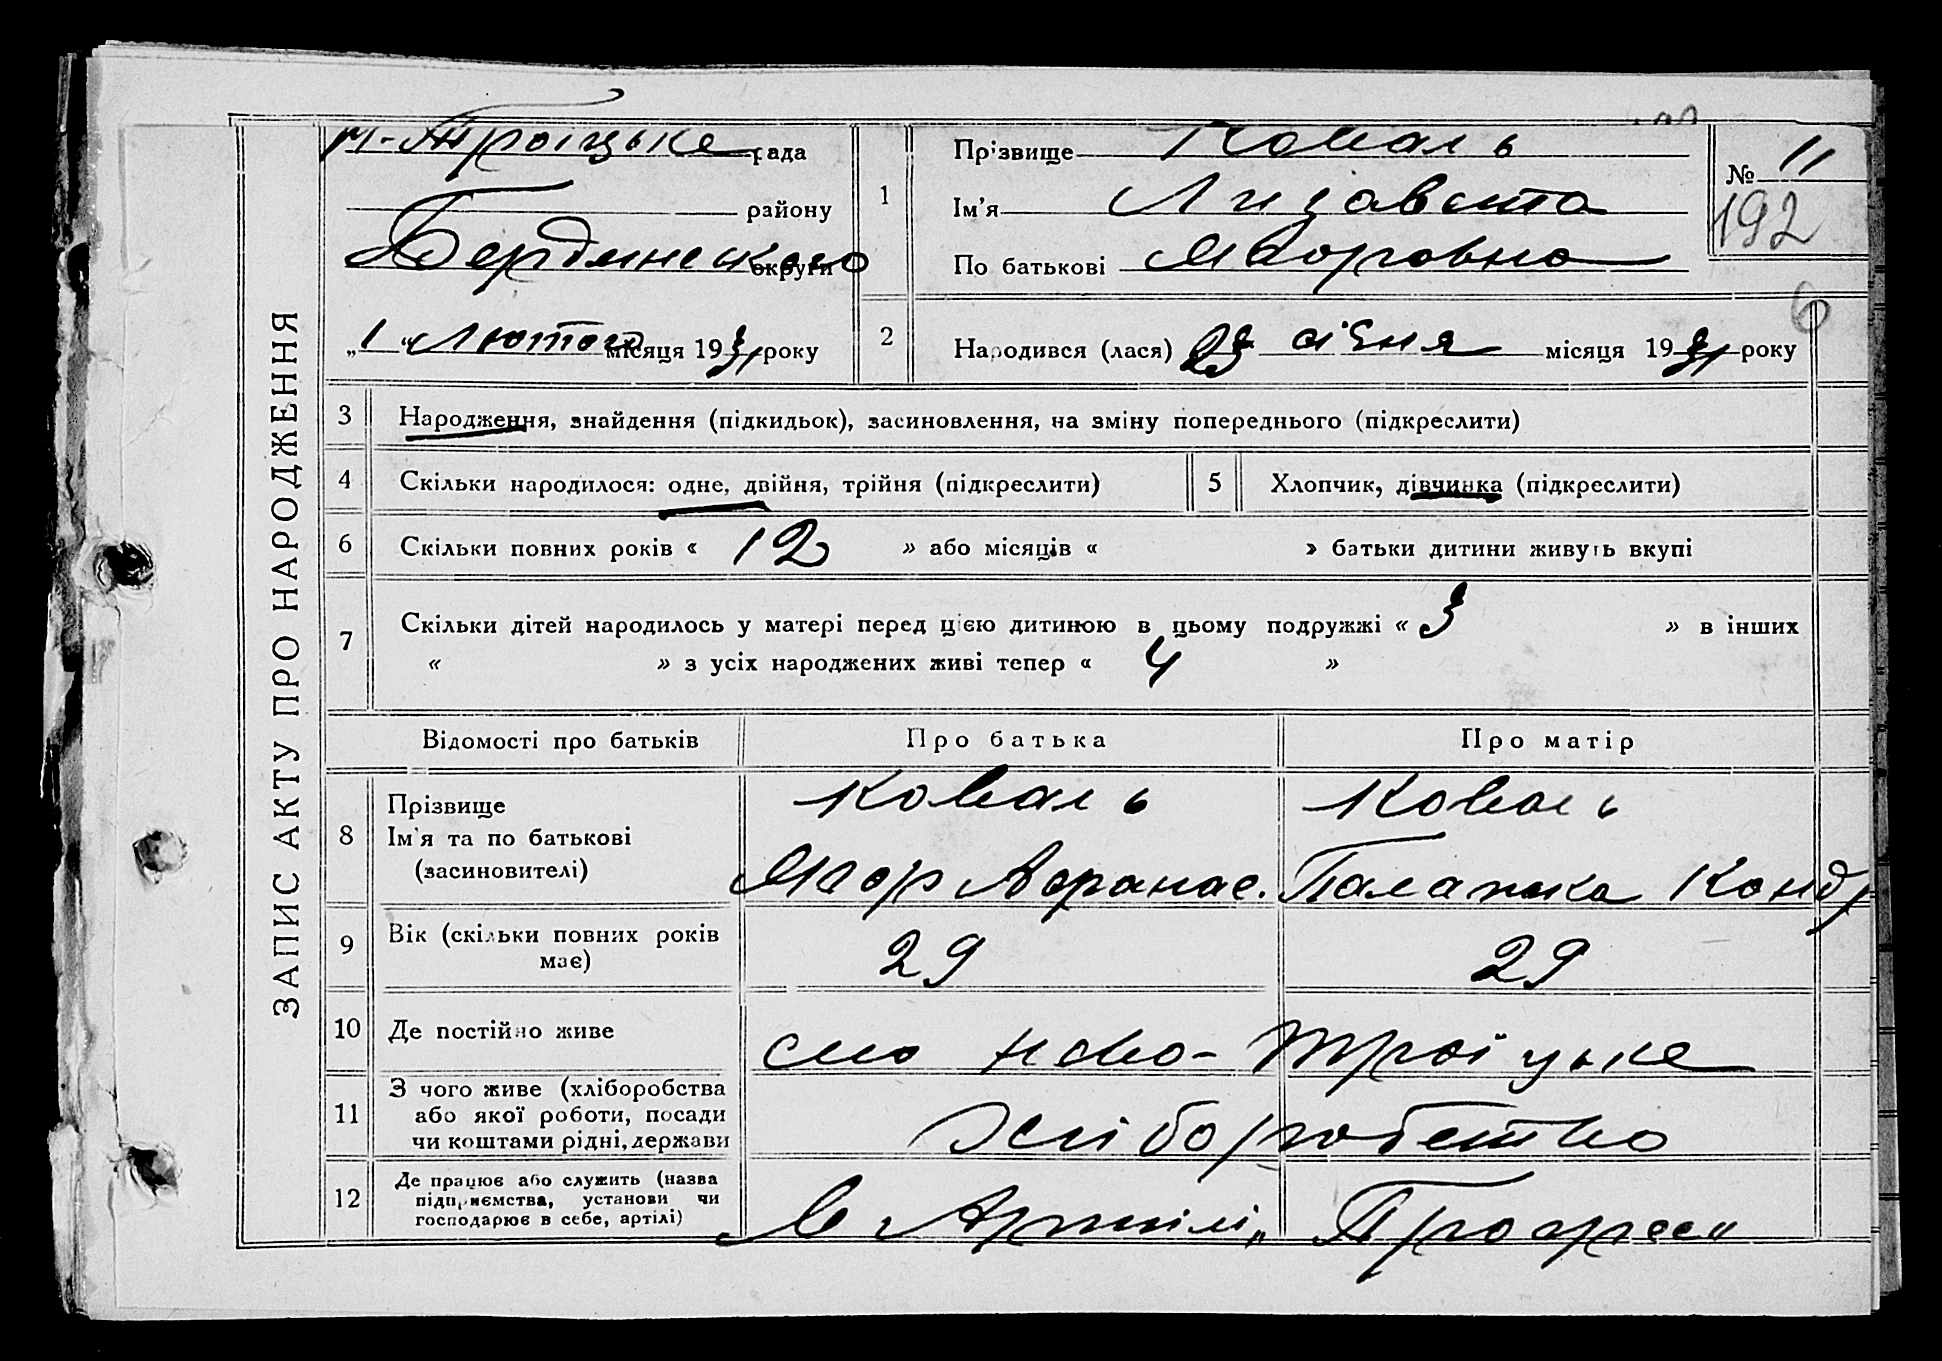 ЗАПИС АКТУ ПРО НАРОДЖЕННЯ
Н-Троіцьке рада
району
Бердянського округи
„1" Лютого місяця 1931 року
1
Прізвище Коваль
Ім'я Лизавета
По батькові Ягоровна
№ 11
192
6
2
Народився (лася) 23 січня місяця 1931 року
3 Народження, знайдення (підкидьок), засиновлення, на зміну попереднього (підкреслити)
4 Скільки народилося: одне, двійня, трійня (підкреслити)
5 Хлопчик, дівчинка (підкреслити)
6 Скільки повних років « 12 » або місяців « » батьки дитини живуть вкупі
7 Скільки дітей народилось у матері перед цією дитиною в цьому подружжі « 3 » в інших
« » з усіх народжених живі тепер « 4 »
Відомості про батьків Про батька Про матір
8 Прізвище Коваль Коваль
Ім'я та по батькові
(засиновителі) Ягор Афанас. Палажка Кондр
9 Вік (скільки повних років
має) 29 29
10 Де постійно живе село Ново-Троіцьке
11 З чого живе (хліборобства
або якої роботи, посади
чи коштами рідні, держави Хліборобство
12 Де працює або служить (назва
підприємства, установи чи
господарює в себе, артілі) В Артілі „Прогрес"